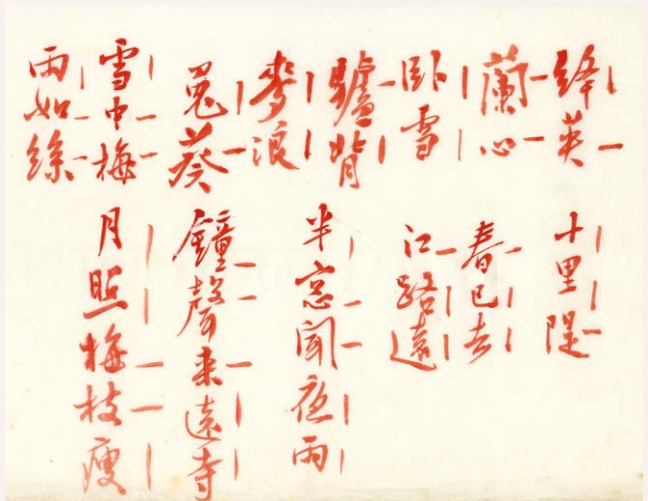 絳英
蘭心
卧雪
驢背
麥浪
兎葵
雪中梅
雨如絲
十里隄
春已去
江路遠
半窓聞夜雨
鐘聲来遠寺
月照梅枝瘦